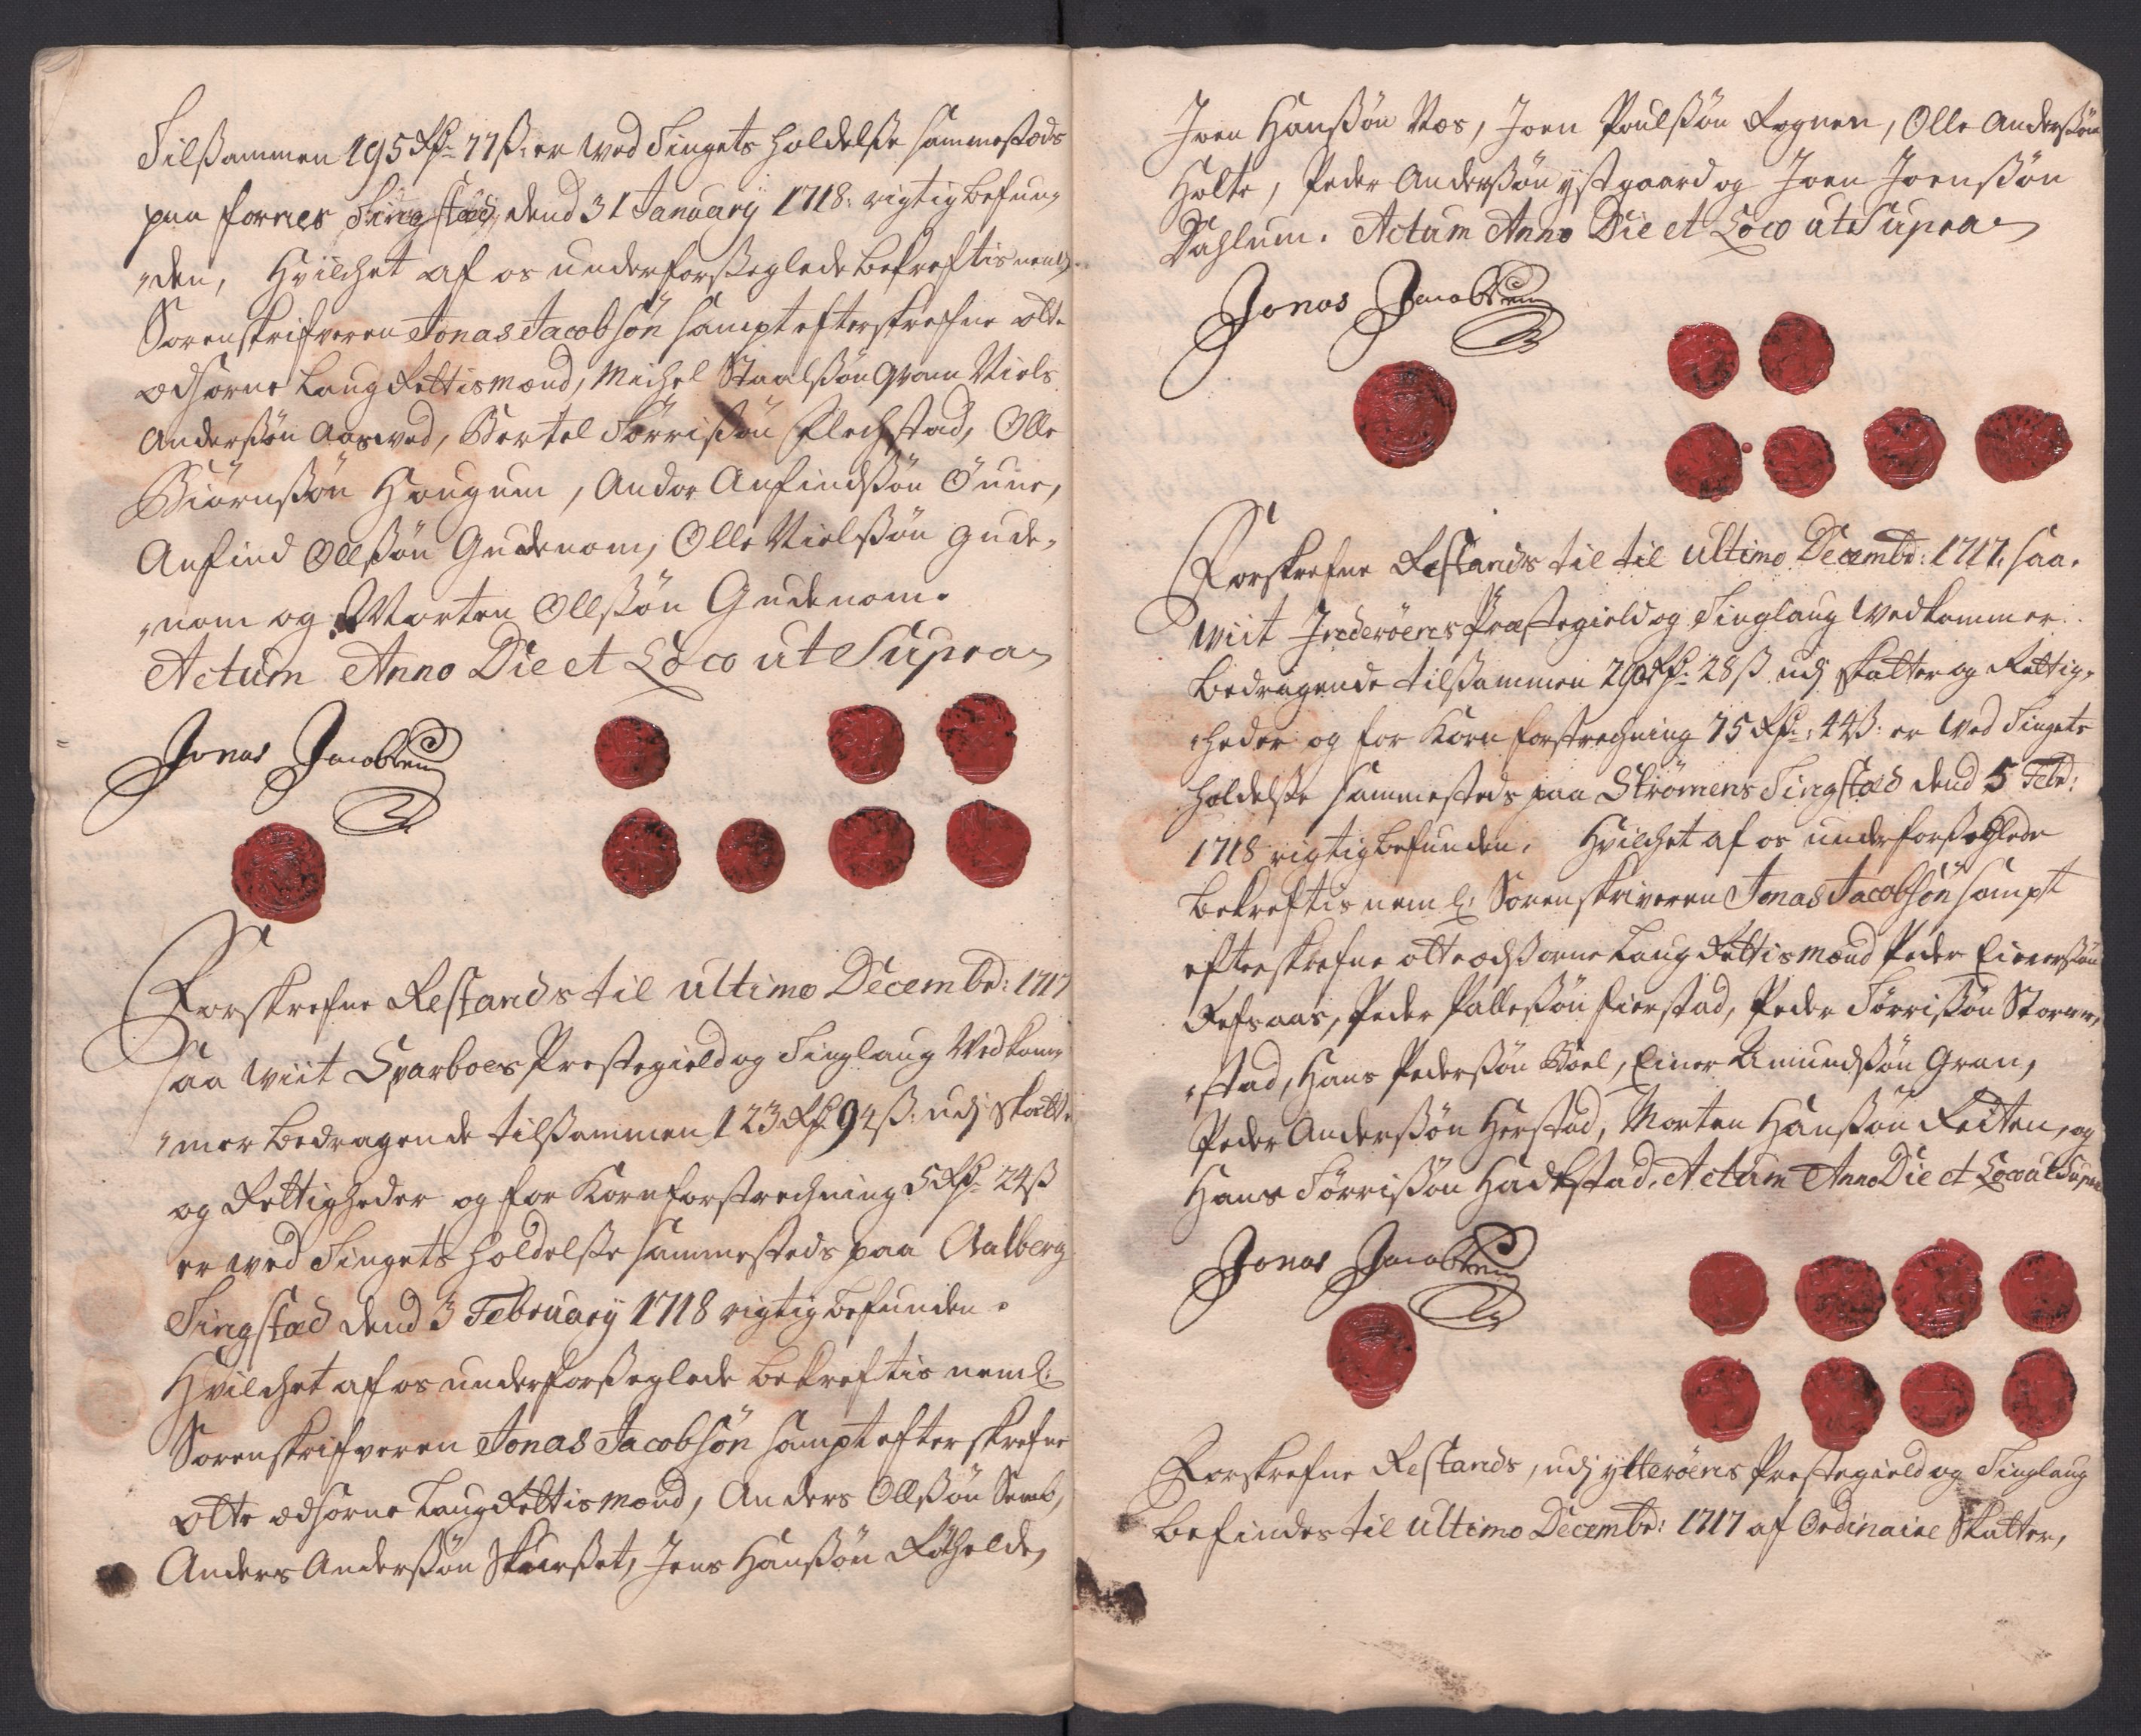 Tilsammen 195 Rdr 77 ß: er wed Tingets holdelse sammestæds
paa fornes Tingstæd, dend 31 January 1718: rigtig befun,,
,,den, Hvilchet af os underforseglede bekreftis neml:
Sorenskrifveren Jonas Jacobsøn sampt efterskrefne otte
ædsorne Laug Rettismænd, Michel Staalssøn Qvam Niels
Anderssøn Aasved, Bertel Tørrissøn Flechstad, Olle
Biørnssøn Hougum, Andor Anfindssøn Öune,
Anfind Ollssøn Gudenom, Olle Nielssøn Gude,,
,,nom og Morten Ollssøn Gudenom.
Actum Anno Die et Loco ut Supra
Jonas Jacobsen
Forskrefne Restands til ultimo Decembr: 1717
saa wiit Sparboes Prestegield og Tinglaug Wedkom,,
,,mer bedragende tilsammen 123 Rdr 94 ß: udj Skatter
og Rettigheder og for Kornforstrechning 5 Rdr 24 ß
er wed Tingets holdelse sammesteds paa Aalberg
Tingstæd dend 3 February 1718 rigtig befunden.
Hvilchet af os underforseglede bekreftis neml:
Sorenskrifveren Jonas Jacobsøn sampt efterskrefne
otte ædsorne Laug Rettismænd, Anders Ollssøn Semb,
Anders Anderssøn Skierset, Jens Hanssøn Røhelde,
Joen Hanssøn Næs, Joen Poulssøn Rognen, Olle Anderssøn
Holte, Peder Anderssøn ystgaard og Joen Joenssøn
Dahlum. Actum Anno Die et Loco ut Supra
Jonas Jacobsen
Forskrefne Restands til til ultimo Decembr: 1717. saa,
wiit Inderøens Præstegield og Tinglaug Wedkommer
bedragende tilsammen 290 Rdr 28 ß udj Skatter og Rettig,,
,,heder og for Korn forstrechning 75 Rdr: 44 ß: er wed Tingets
holdelse sammesteds paa Strømens Tingstæd dend 5 Febr:
1718 rigtig befunden. Hvilchet af os underforseglede
bekreftis neml: Sorenskriveren Jonas Jacobsøn sampt
efterskrefne otte ædsorne Laug Rettismænd Peder Einerssøn
Refsaas, Peder Pallessøn Fierstad, Peder Tørrissøn Storm,,
,,stad, Hans Pederssøn Boel, Einer Amundssøn Gran,
Peder Anderssøn Herstad, Morten Hanssøn Reiten, og
Hans Tørrissøn Hachstad. Actum Anno Die et Loco ut Supra
Jonas Jacobsen
Forskrefne Restands, udj ytterøens Prestegield og Tinglaug
befindes til ultimo Decembr: 1717 af Ordinaire Skatter,